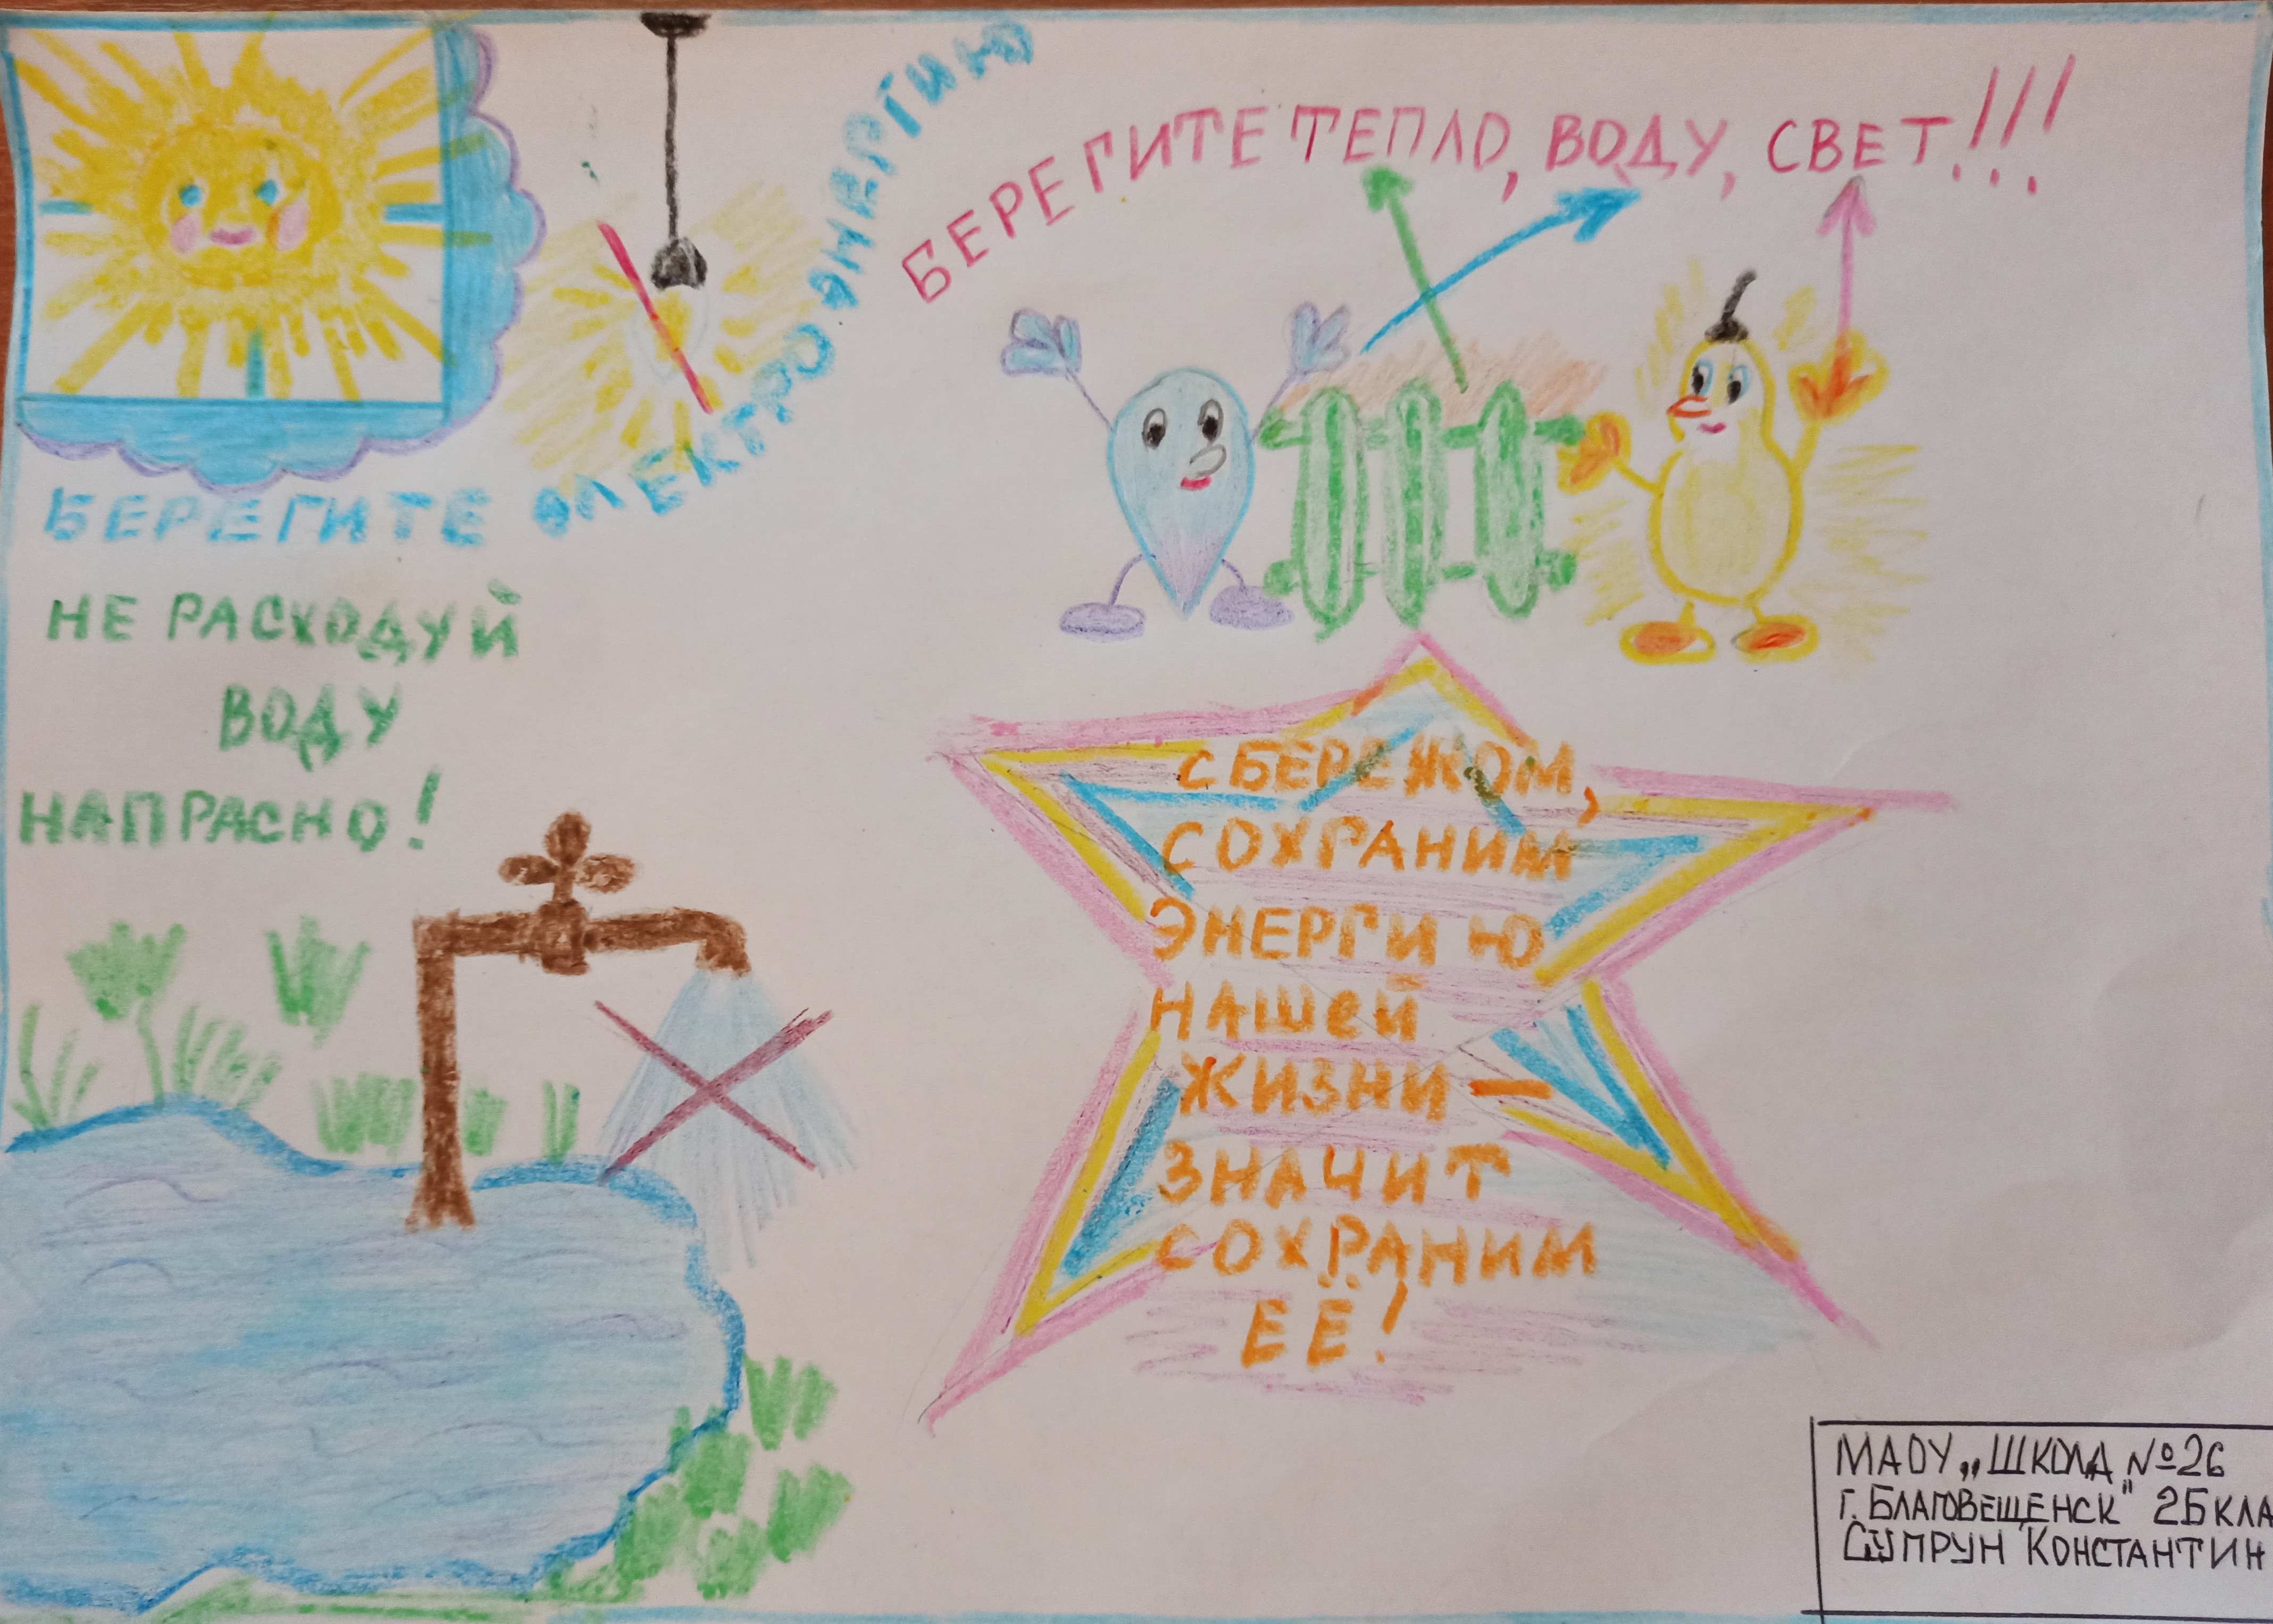 БЕРЕГИТЕ ЭЛЕКТРОЭНЕРГИЮ
БЕРЕГИТЕ ТЕПЛО, ВОДУ, СВЕТ!!!
НЕ РАСХОДУЙ
ВОДУ
НАПРАСНО!
СБЕРЕЖОМ,
СОХРАНИМ
ЭНЕРГИЮ
НАШЕЙ
ЖИЗНИ —
ЗНАЧИТ
СОХРАНИМ
ЕЁ!
МАОУ „ШКОЛА №26
г. БЛАГОВЕЩЕНСК" 2Б КЛА
СУПРУН КОНСТАНТИН